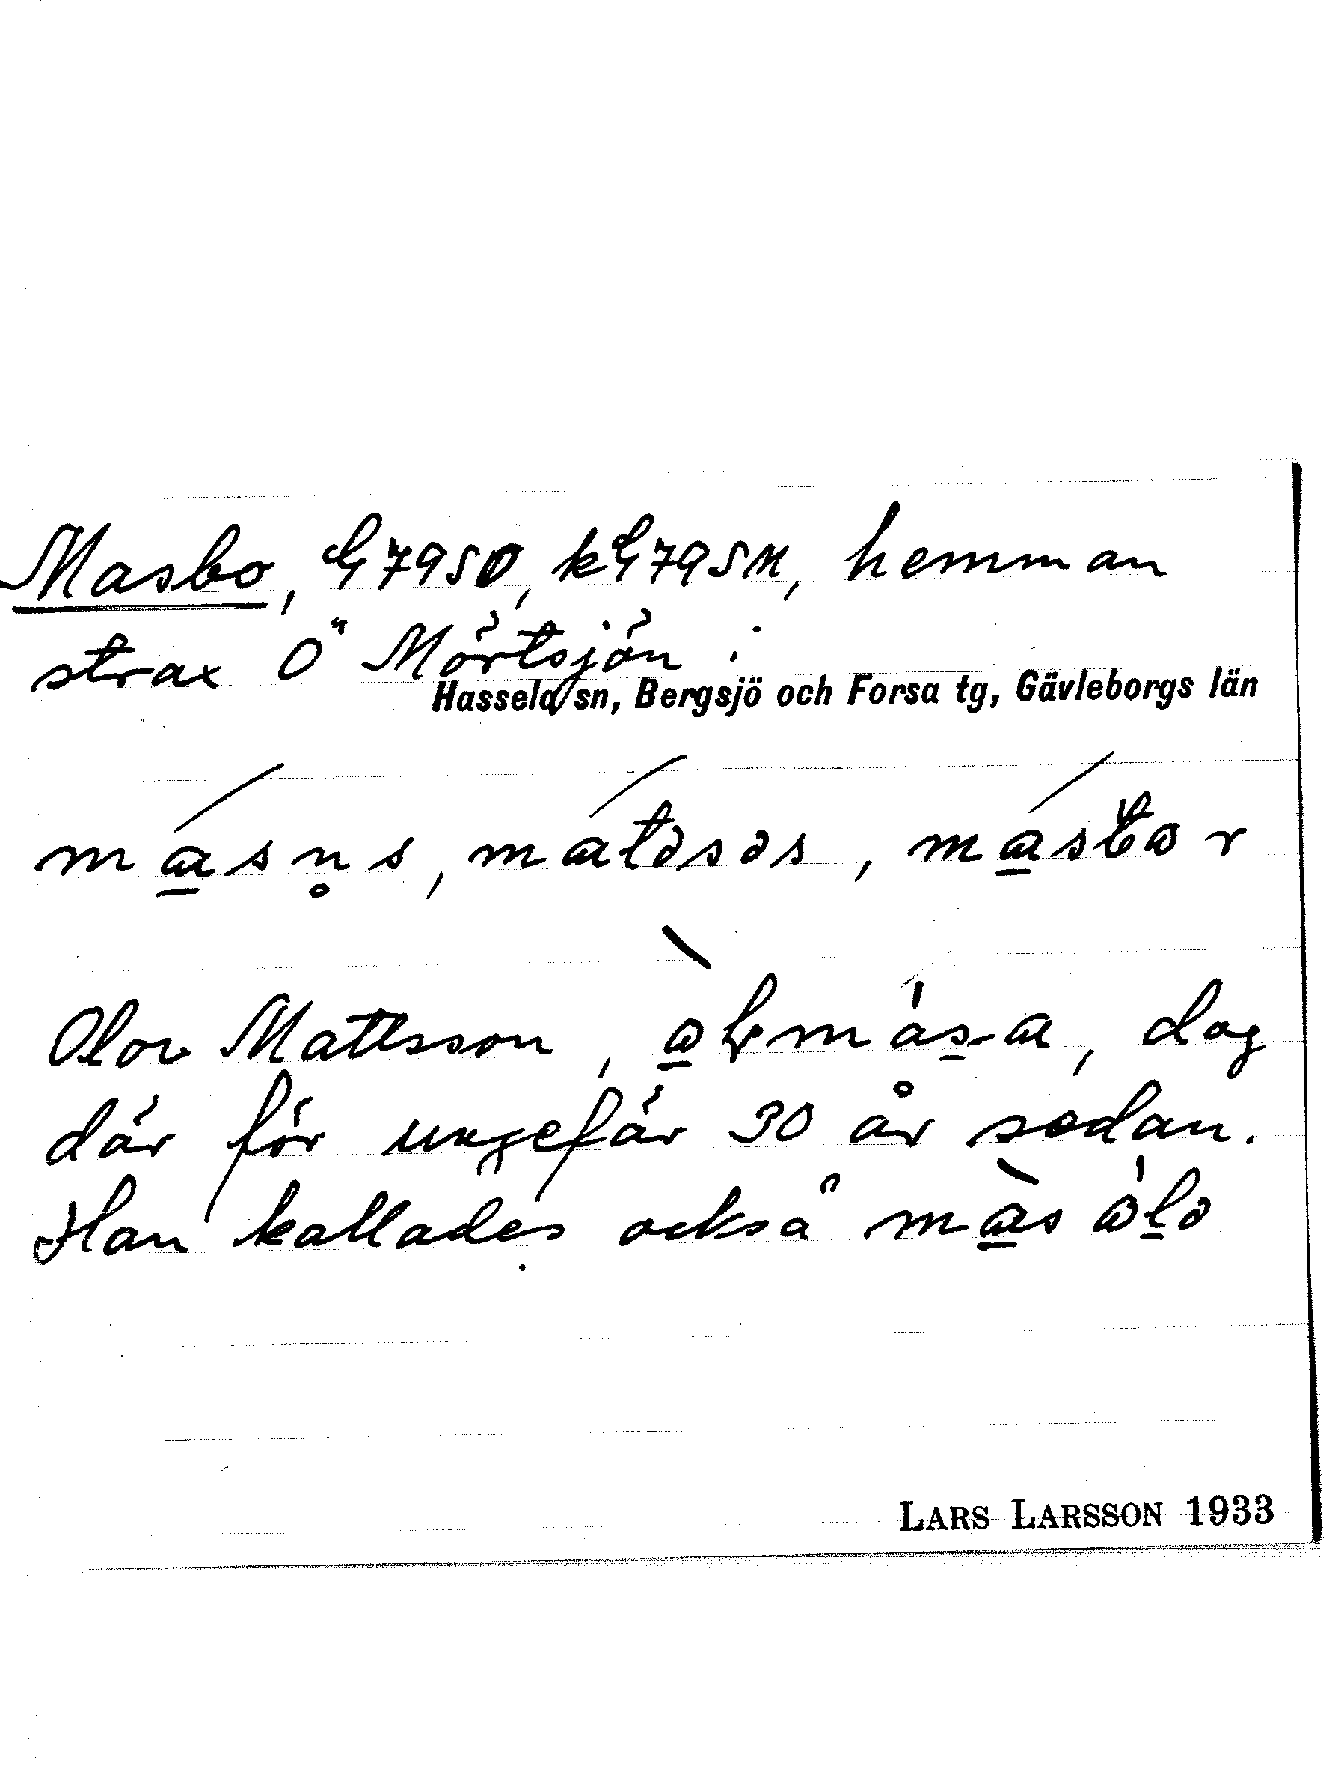 Masbo, G7950, kG795M, hemman
strax Ö Mörtsjön.
Hassela sn, Bergsjö och Forsa tg, Gävleborgs län
másn̥s, matəsəs,
Olov Mattsson, dog
där för ungefär 30 år sedan.
Han kallades också
LARS LARSSON 1933